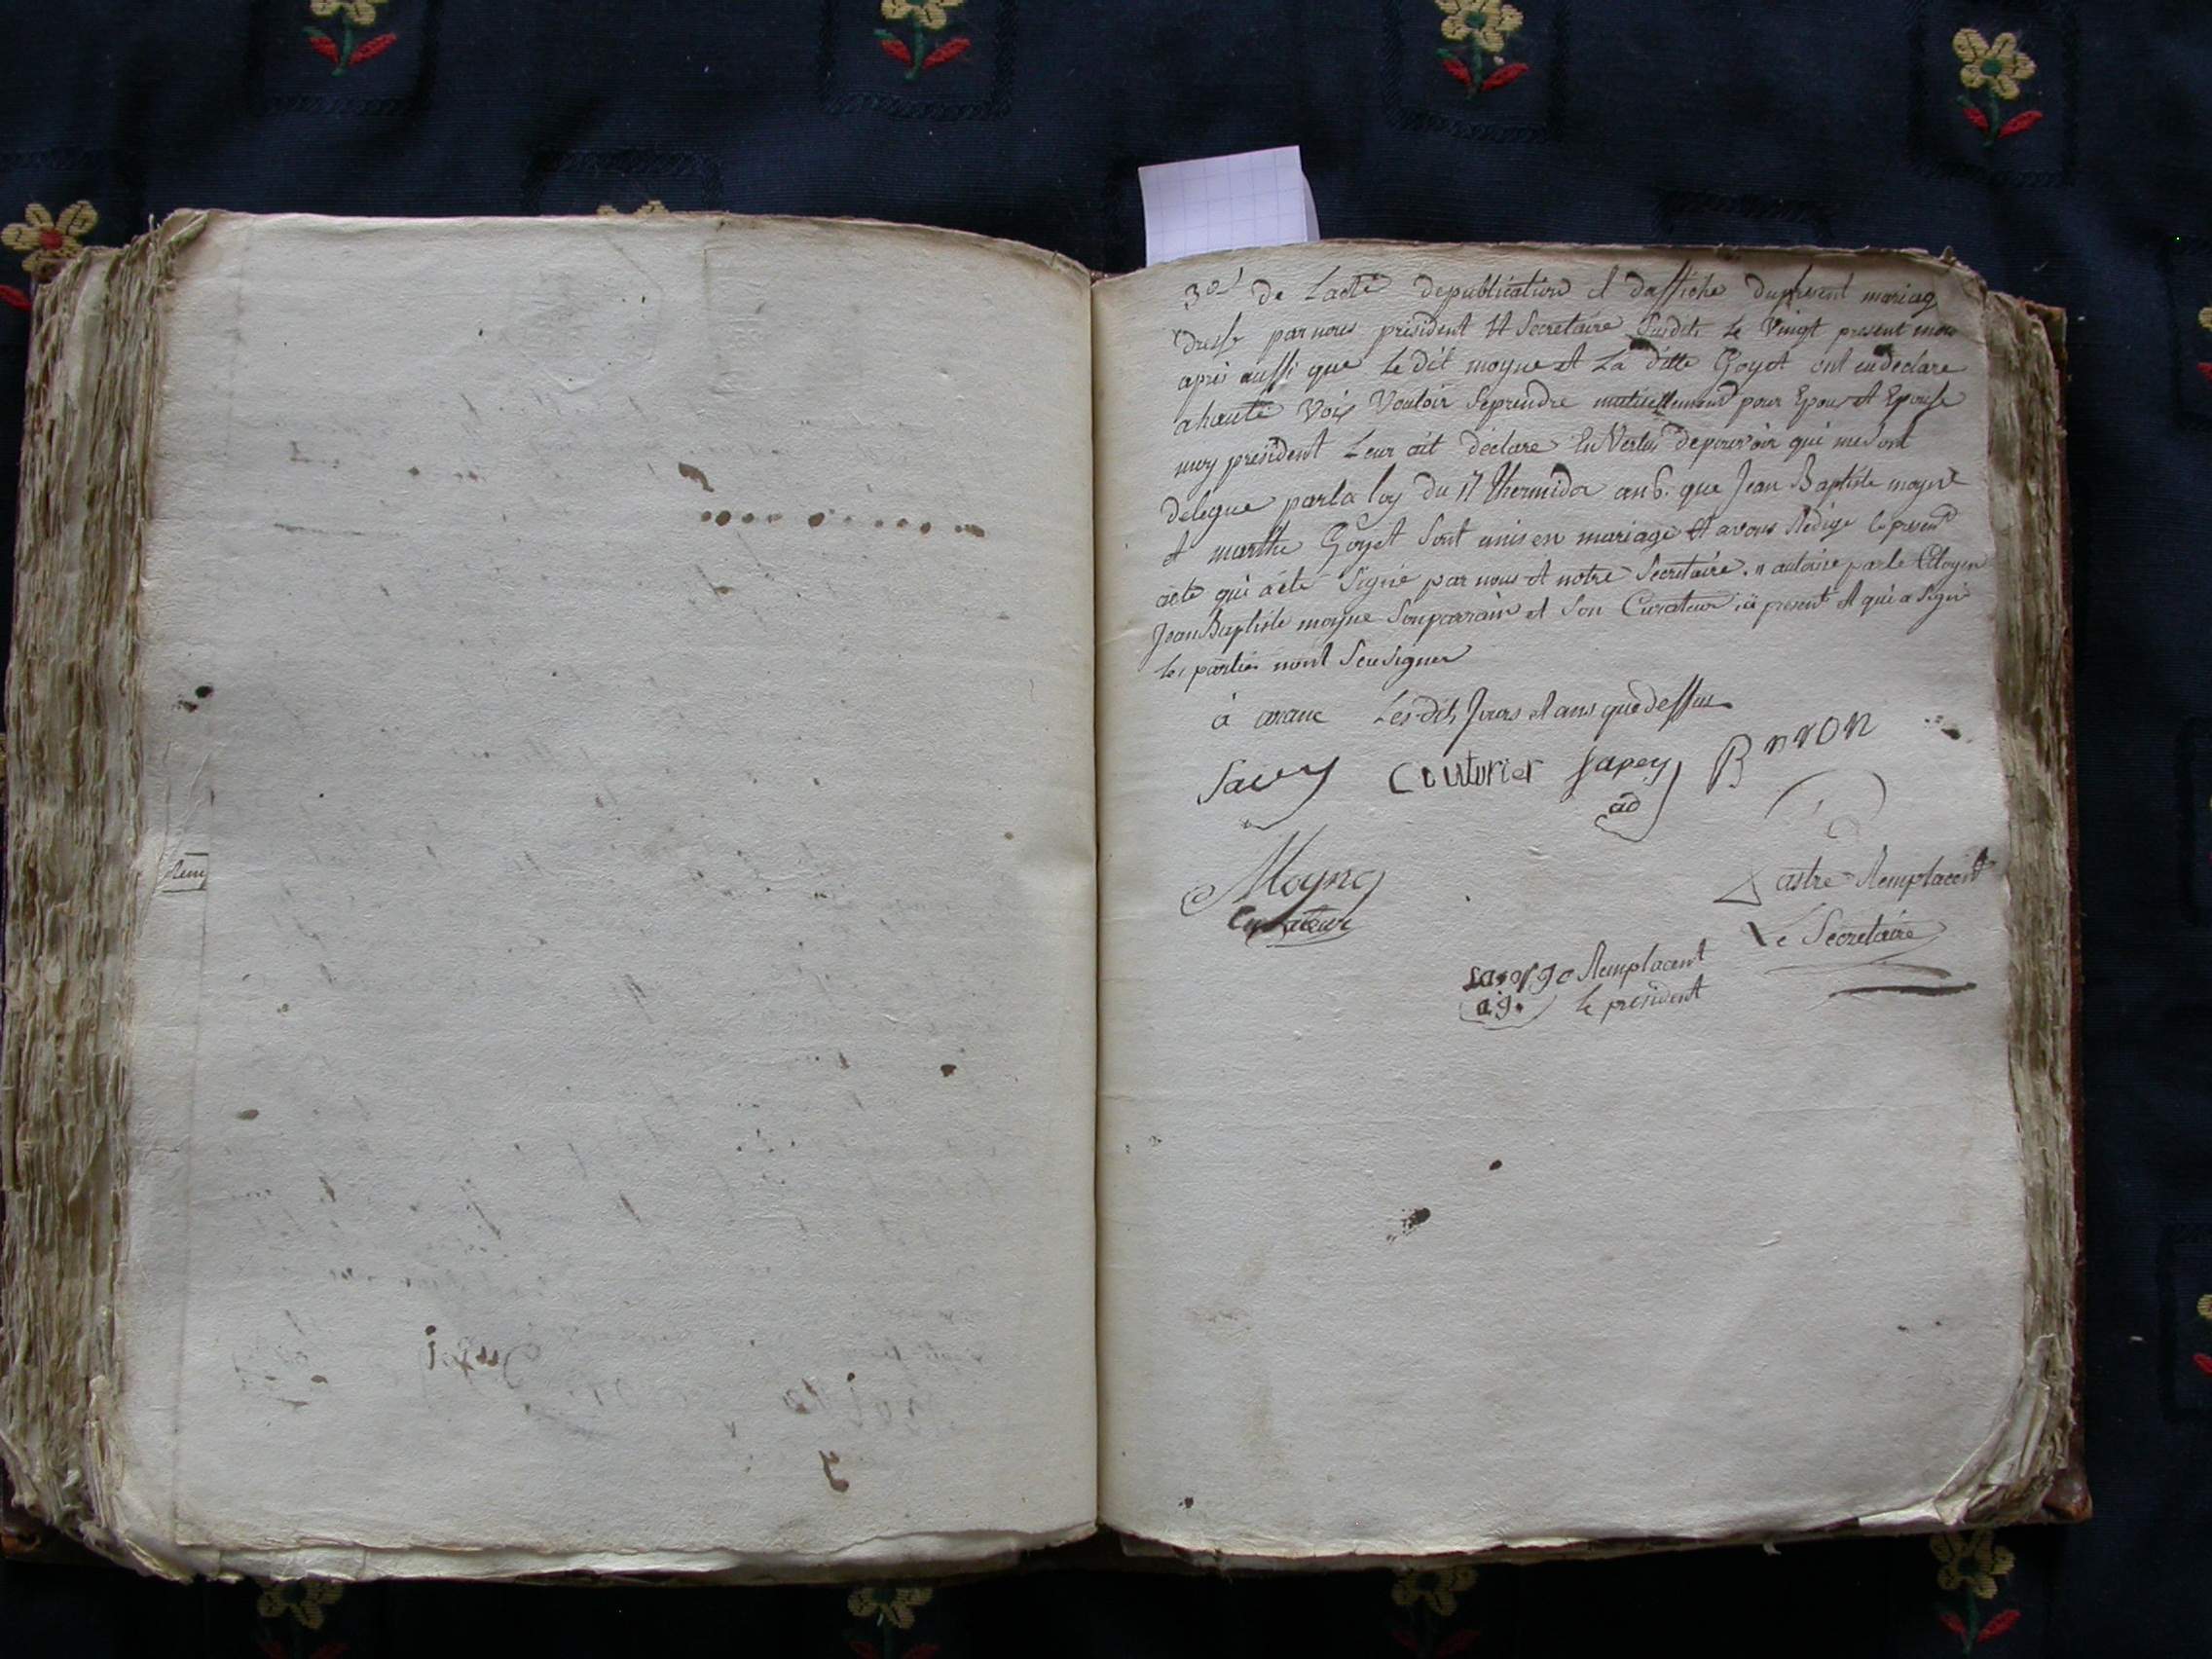 3o de Lacte depublication et daffiche dupresent mariag
dresse par nous président et Secretaire Susdits le Vingt present mois
aprés aussi que le dit moyne et La ditte Goyet ont eu declare
ahaute Voix Vouloir Seprendre mutuellement pour Epoux et Epouse
moy président Leur ait déclare En Vertus depouvoir qui me sont
delegue parla loy du 17 thermidor an 6. que Jean Baptiste moyne
et marthe Goyet Sont unis en mariage et avons Redige le present
acte qui aété Signé par nous et notre Secretaire. " autorise parle Citoyen
JeanBaptiste moyne Sonparrain et Son Curateur ici present et qui a Signé
les parties nont Scu signer
à aranc Les dits Jours et ans que dessus
Savy Couturier Sapey Buron
ad
Moyne
Curateur
astre Remplacent
Le Secretaire
Remplacent
a.g. le president
Remy